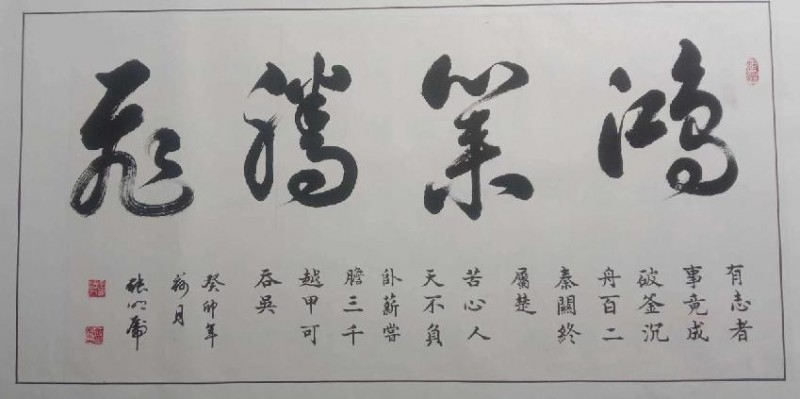 鴻業騰飛
有志者
事竟成
破釜沉
舟百二
秦關終
屬楚
苦心人
天不負
卧薪嘗
膽三千
越甲可
吞吳
癸卯年
月
張